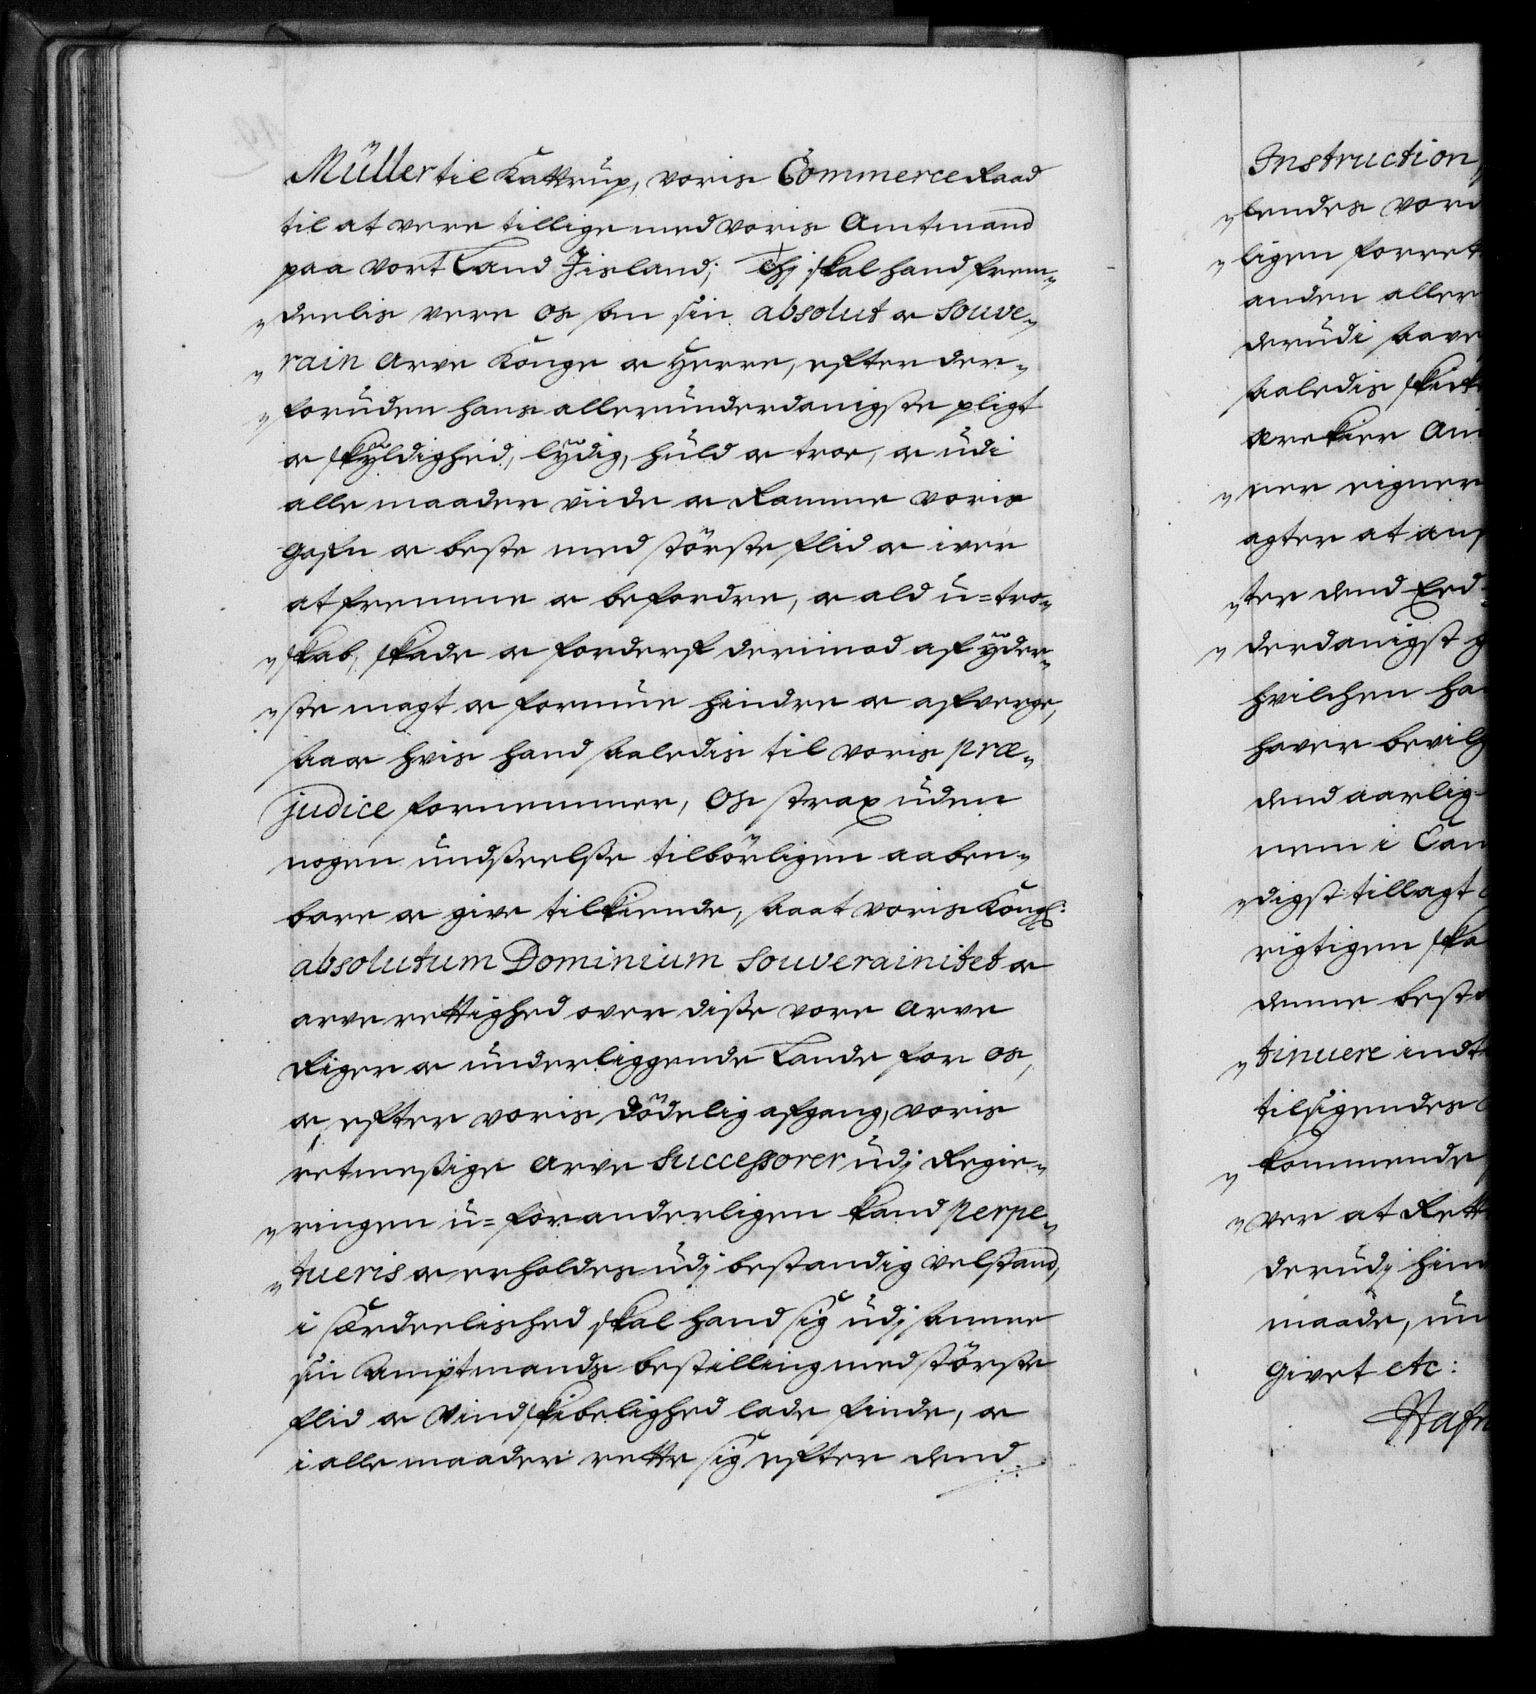 Müller til Kattrup, voris Commerce Raad
til at vere tillige med voris Amtmand
paa vort Land Jisland; Thj skal hand frem„
„deelis vere os som sin absolut og Souve„
„rain Arve Konge og Herre, efter der„
„foruden hans allerunderdanigste pligt
og skÿldighed, lÿdig, huld og troe, og udi
alle maader viide og Ramme voris
gafn og beste med störste flid og iver
at fremme og befordre, og ald u=tro„
„skab, skade og forderf derimod af ÿder„
„ste magt og formue hindre og afverge,
saa og hvis hand saaledis til voris præ„
judice fornemmer, Os strax uden
nogen undseelse tilbörligen aaben„
bare og give tilkiende, saa at voris Kongl:
absolutum Dominium Souverainitet og
arve rettighed over disse vore Arve
Riger og underliggende Lande for os,
og efter voris dödelig afgang, voris
retmessige Arve Successorer udj Regie„
„ringen u=foranderligen kand perpe„
„tueris og erholdes udj bestandig velstand,
i særdeelished skal hand sig udj samme
sin Amptmands bestilling med störste
flid og Vindskibelighed lade finde, og
i alle maader rette sig efter dend
Instruction
„lendes vor
„ligen forret
anden aller
derudi have
saaledis
ærekier
„ner eigner
agter at
„ter dend Eed
„derdanigst
hvilchen
haver bevilg
dend aarlig
nem i
„digst tillagt
rigtigen
denne best
„tinuere indt
tilsigendes
„kommende
„ver at Rett
derudj hin
maade, un
Givet etc:
Hafn